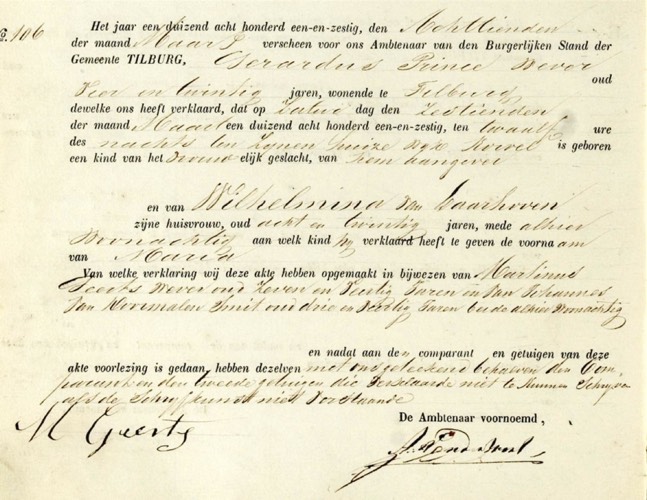 No. 106
Het jaar een duizend acht honderd een-en-zestig, den Achttienden
der maand Maart verscheen voor ons Ambtenaar van den Burgerlijken Stand der
Gemeente TILBURG, Gerardus Prince Wever
oud
Vier en Twintig jaren, wonende te Tilburg
dewelke ons heeft verklaard, dat op Zatur dag den Zestienden
der maand Maart een duizend acht honderd een-en-zestig, ten twaalf ure
des nachts ten zijnen huize Wijk Korvel is geboren
een kind van het Vrouw elijk geslacht, van hem aangever
en van Wilhelmina van Laarhoven
zijne huisvrouw, oud acht en Twintig jaren, mede alhier
Woonachtig aan welk kind hij verklaard heeft te geven de voorna am
van Maria
Van welke verklaring wij deze akte hebben opgemaakt in bijwezen van Martinus
Geerts Wever oud Zeven en Veertig Jaren en van Johannes
van Smit oud drie en Veertig Jaren beide alhier Woonachtig
en nadat aan den comparant en getuigen van deze
akte voorlezing is gedaan, hebben dezelven met ons geteekend behalven den Com
parant en den tweede getuigen die Verklaarde niet te kunnen Schryven
als de Schryfkunst niet Verstaande
De Ambtenaar voornoemd,
M Geerts